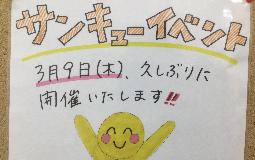 サンキューイベント
3月9日(木)、久しぶりに
開催いたします!!